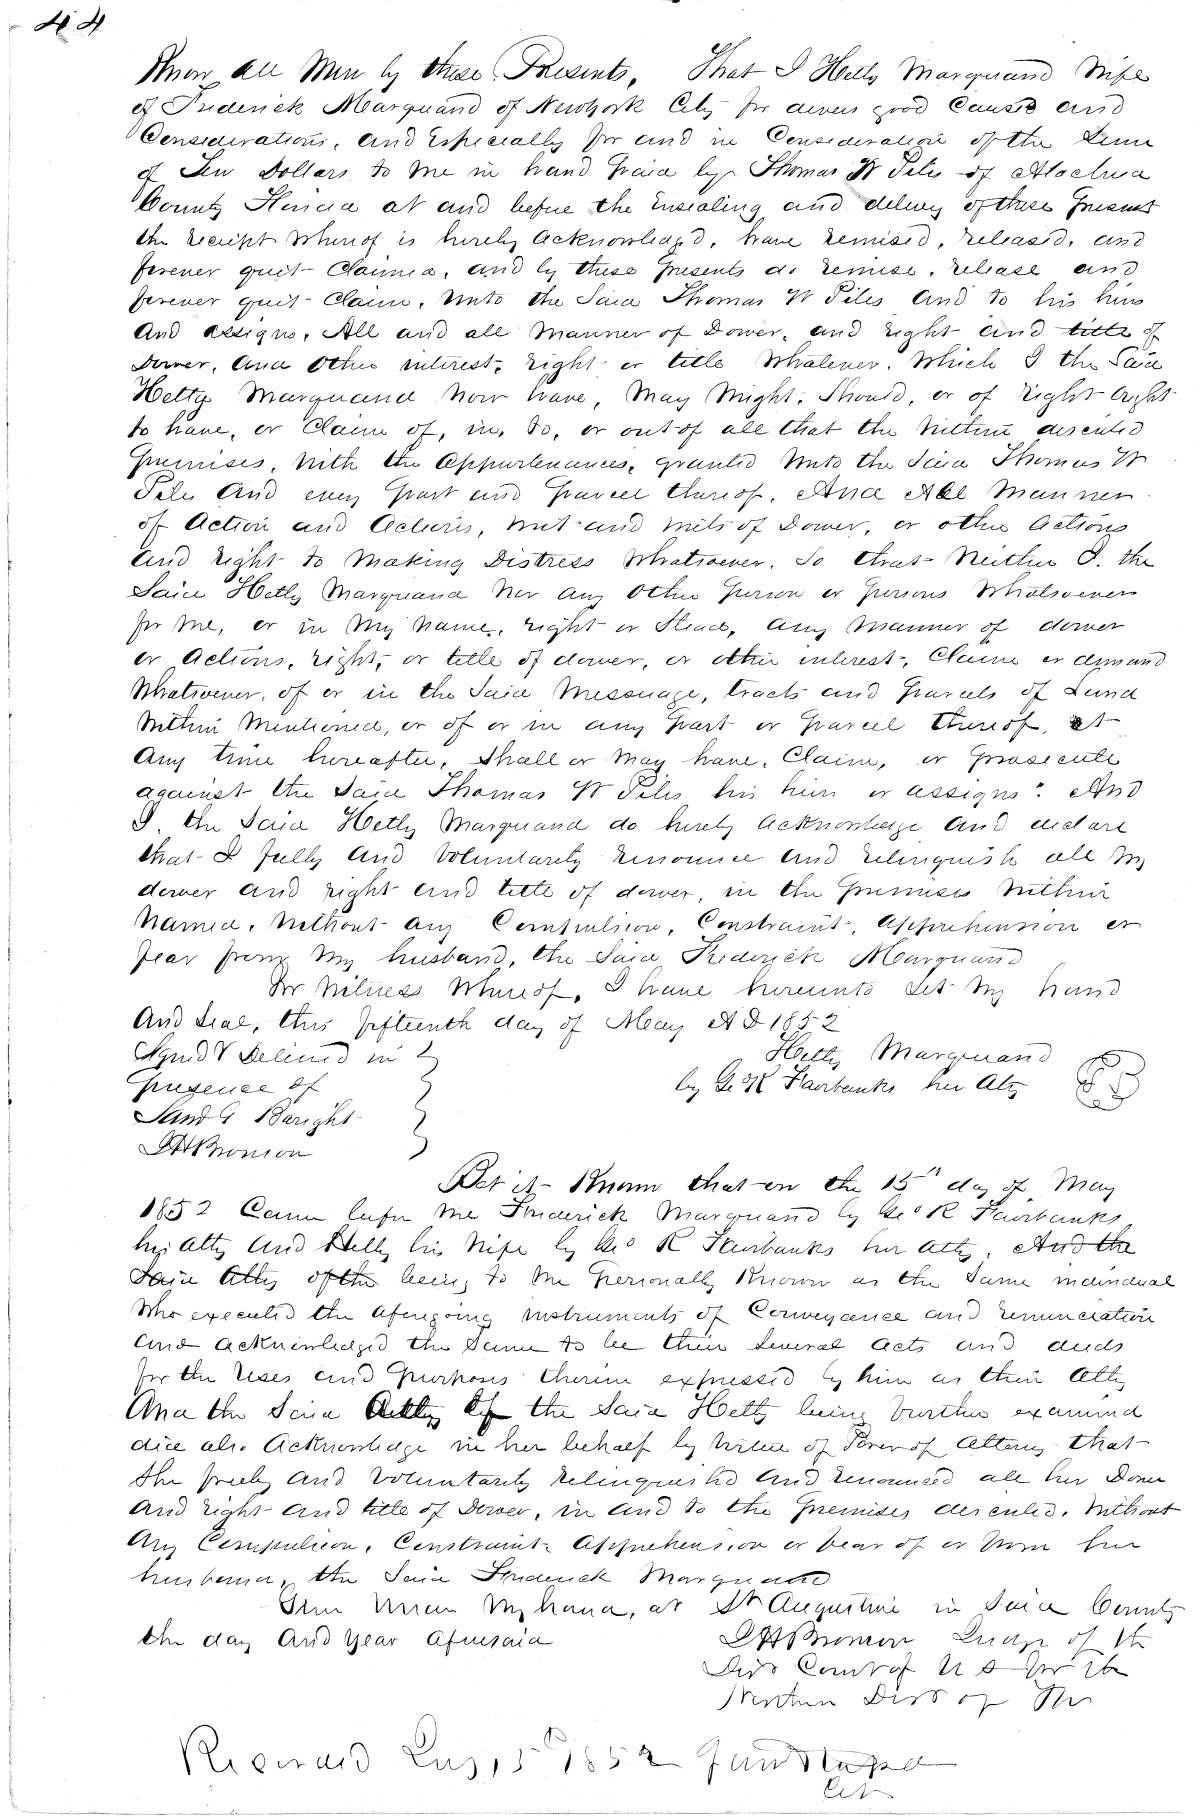 44
Know all Men by these Presents, That I Hetty Marquand Wife
of Frederick Marquand of Newyork City for divers good Causes and
Considerations, and Especially for and in Consideration of the Sum
of Ten Dollars to me in hand paid by Thomas W Piles of Alachua
County Florida at and before the Ensealing and delivery of these presents
the receipt whereof is hereby acknowledged, have remised, released, and
forever quit-Claimed, and by these presents do remise, release and
forever quit-Claim, unto the Said Thomas W Piles and to his heirs
and assigns, All and all manner of Dower, and right and title of
Dower, and other interest, right or title whatever, which I the Said
Hetty Marquand now have, may might, should, or of right ought
to have, or Claim of, in, to, or out of all that the within described
premises, with the appurtenances, granted unto the Said Thomas W
Piles and every part and parcel thereof, And All manner
of Action and actions, writ and writs of Dower, or other actions
and right to making Distress whatsoever, So that neither I, the
Said Hetty Marquand nor any other person or persons whatsoever
for me, or in my name, right or Stead, any manner of dower
or actions, right, or title of dower, or other interest, Claim or demand
whatsoever, of or in the Said Messuage, tracts and parcels of Land
within mentioned, or of or in any part or parcel thereof, at
any time hereafter, shall or may have, Claim, or prosecute
against the Said Thomas W Piles his heirs or assigns. And
I, the Said Hetty Marquand do hereby acknowledge and declare
that I fully and voluntarily renounce and relinquish all my
dower and right and title of dower, in the premises within
named, without any Compulsion, Constraint, apprehension or
fear from my husband, the Said Frederick Marquand
In Witness Whereof, I have hereunto Set my hand
and Seal, this fifteenth day of May A D 1852
Signed & Delivered in
presence of
Hetty Marquand
by Geo R Fairbanks her Atty
G Baright
I H Bronson
Be it Known that on the 15th day of May
1852 Came before me Frederick Marquand by Geo R Fairbanks
his Atty and Hetty his wife by Geo R Fairbanks her atty, And the
Said Atty of the being to me personally Known as the Same individual
who executed the aforegoing instruments of Conveyance and renunciation
and acknowledged the Same to be their Several acts and deeds
for the uses and purposes therein expressed by him as their Atty
And the Said Atty of the Said Hetty being further examined
did also acknowledge in her behalf by virtue of Power of Attorney that
She freely and voluntarily relinquished and renounced all her Dower
and right and title of Dower, in and to the premises described, without
any Compulsion, Constraint apprehension or fear of or from her
husband, the Said Frederick Marquand
Given Under My hand, at St Augustine in Said County
the day and year aforesaid
I H Bronson Judge of the
Dist Court of U S for the
Northern Dist of Flo
Recorded 15th 1852
Clk